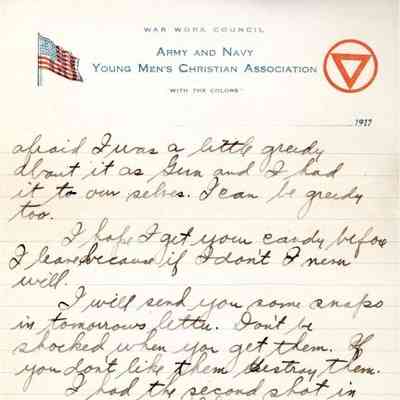 WAR WORK COUNCIL
ARMY AND NAVY
YOUNG MEN'S CHRISTIAN ASSOCIATION
"WITH THE COLORS"
1917
afraid I was a little greedy
about it as Gun and I had
it to our selves. I can be greedy
too.
I hope I get your candy before
I leave because if I dont I never
will.
I will send you some snaps
in tomorrows letter. Don't be
shocked when you get them. If
you dont like them destroy them.
I had the second shot in